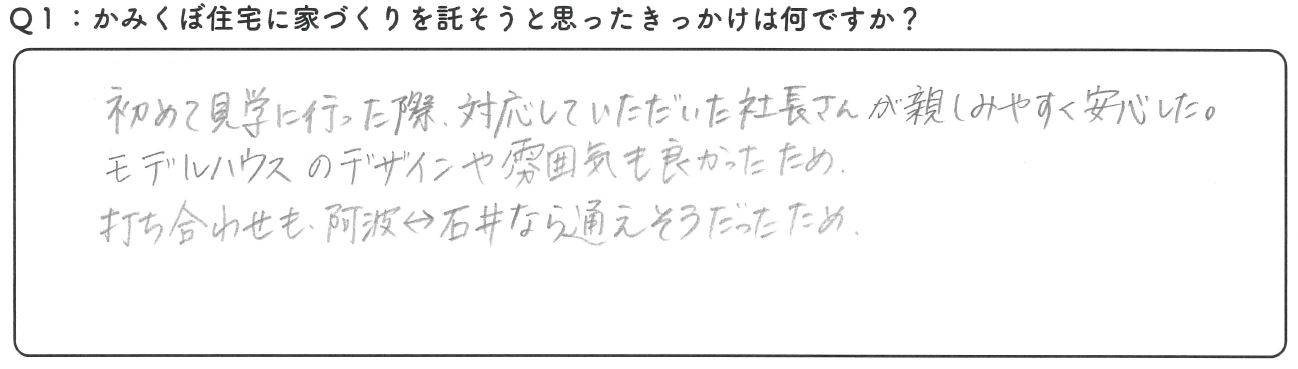 Q1：かみくぼ住宅に家づくりを託そうと思ったきっかけは何ですか？
初めて見学に行った際、対応していただいた社長さんが親しみやすく安心した。
モデルハウスのデザインや雰囲気も良かったため。
打ち合わせも、阿波↔石井なら通えそうだったため。